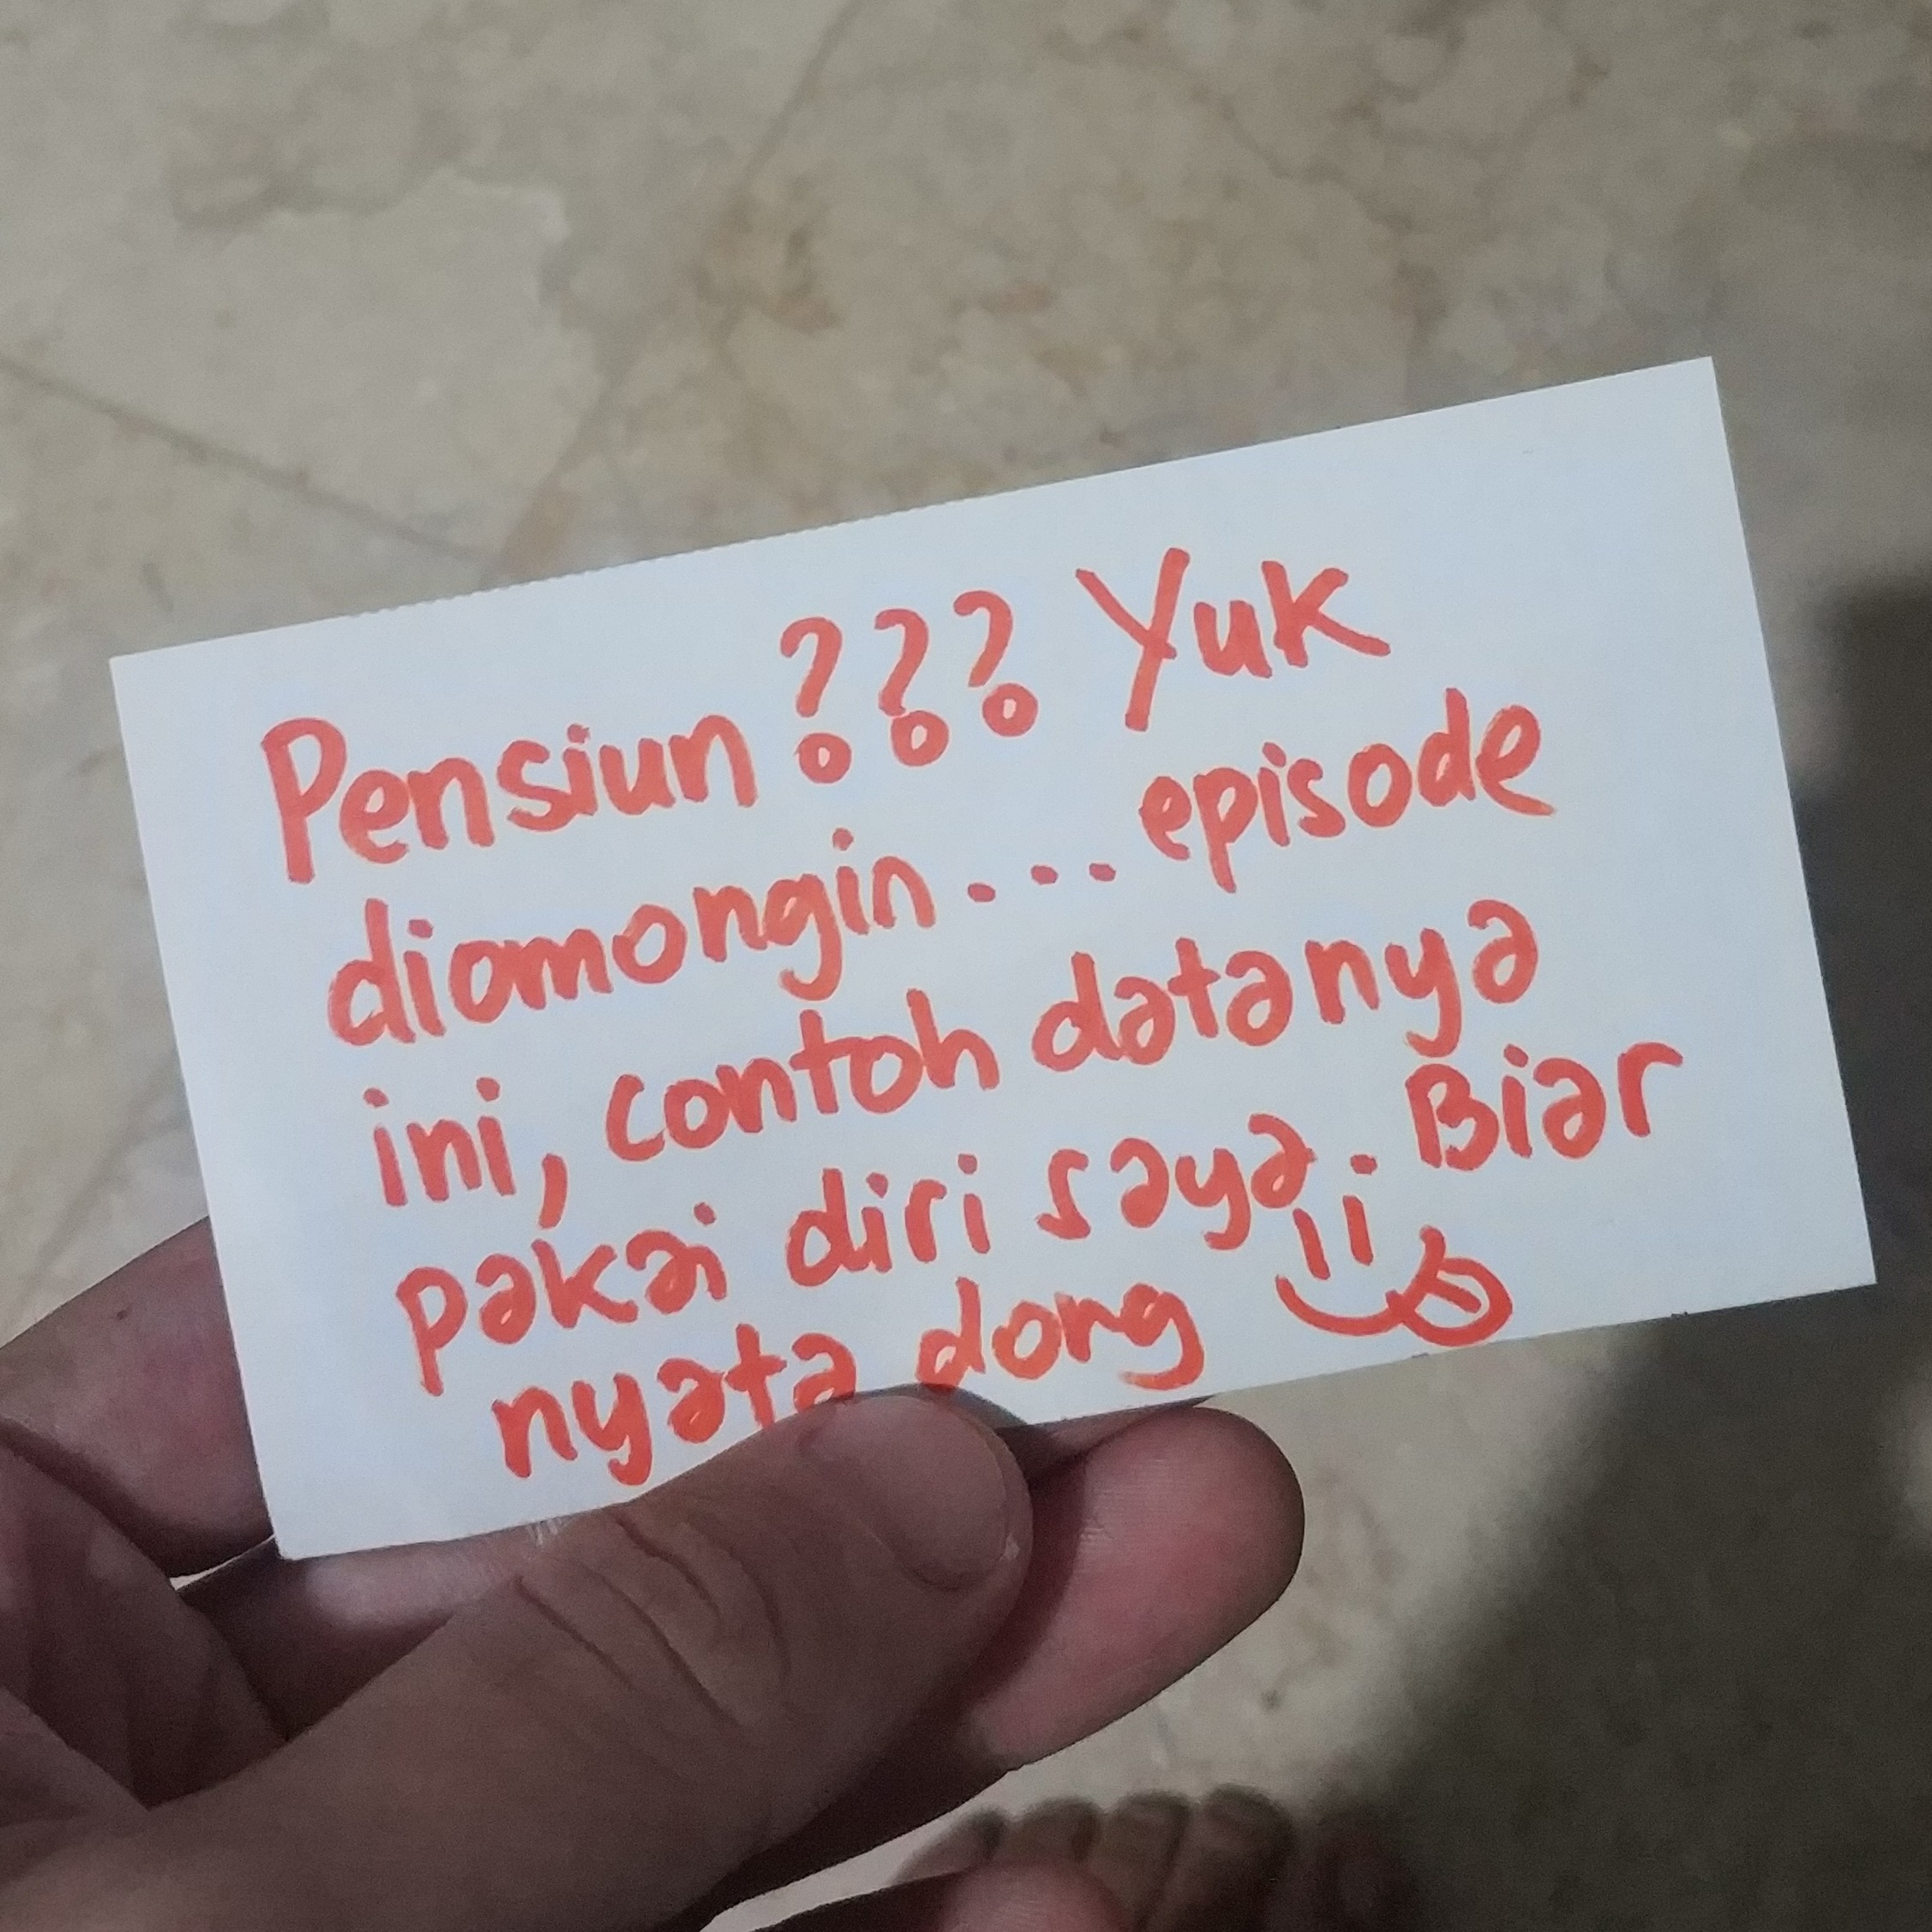 Pensiun??? Yuk
diomongin... episode
ini, contoh datanya
pakai diri saya. Biar
nyata dong